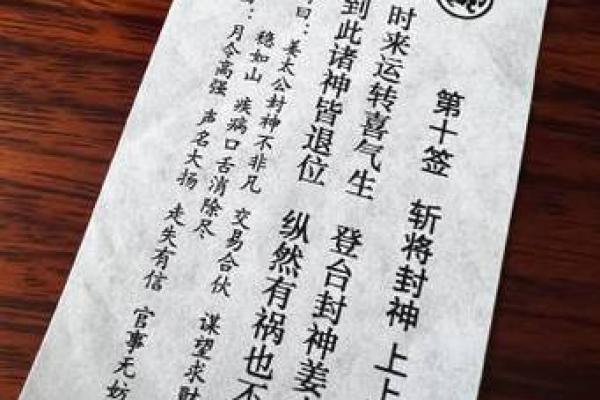 第十签 斩将封神 上上
时来运转喜气生 登台封神姜
到此诸神皆退位 纵然有祸也不
曰：姜太公封神不非凡 交易合伙 谋望求财
稳如山 疾病口舌消除尽
：月令高强 声名大扬 走失有信 官事无妨